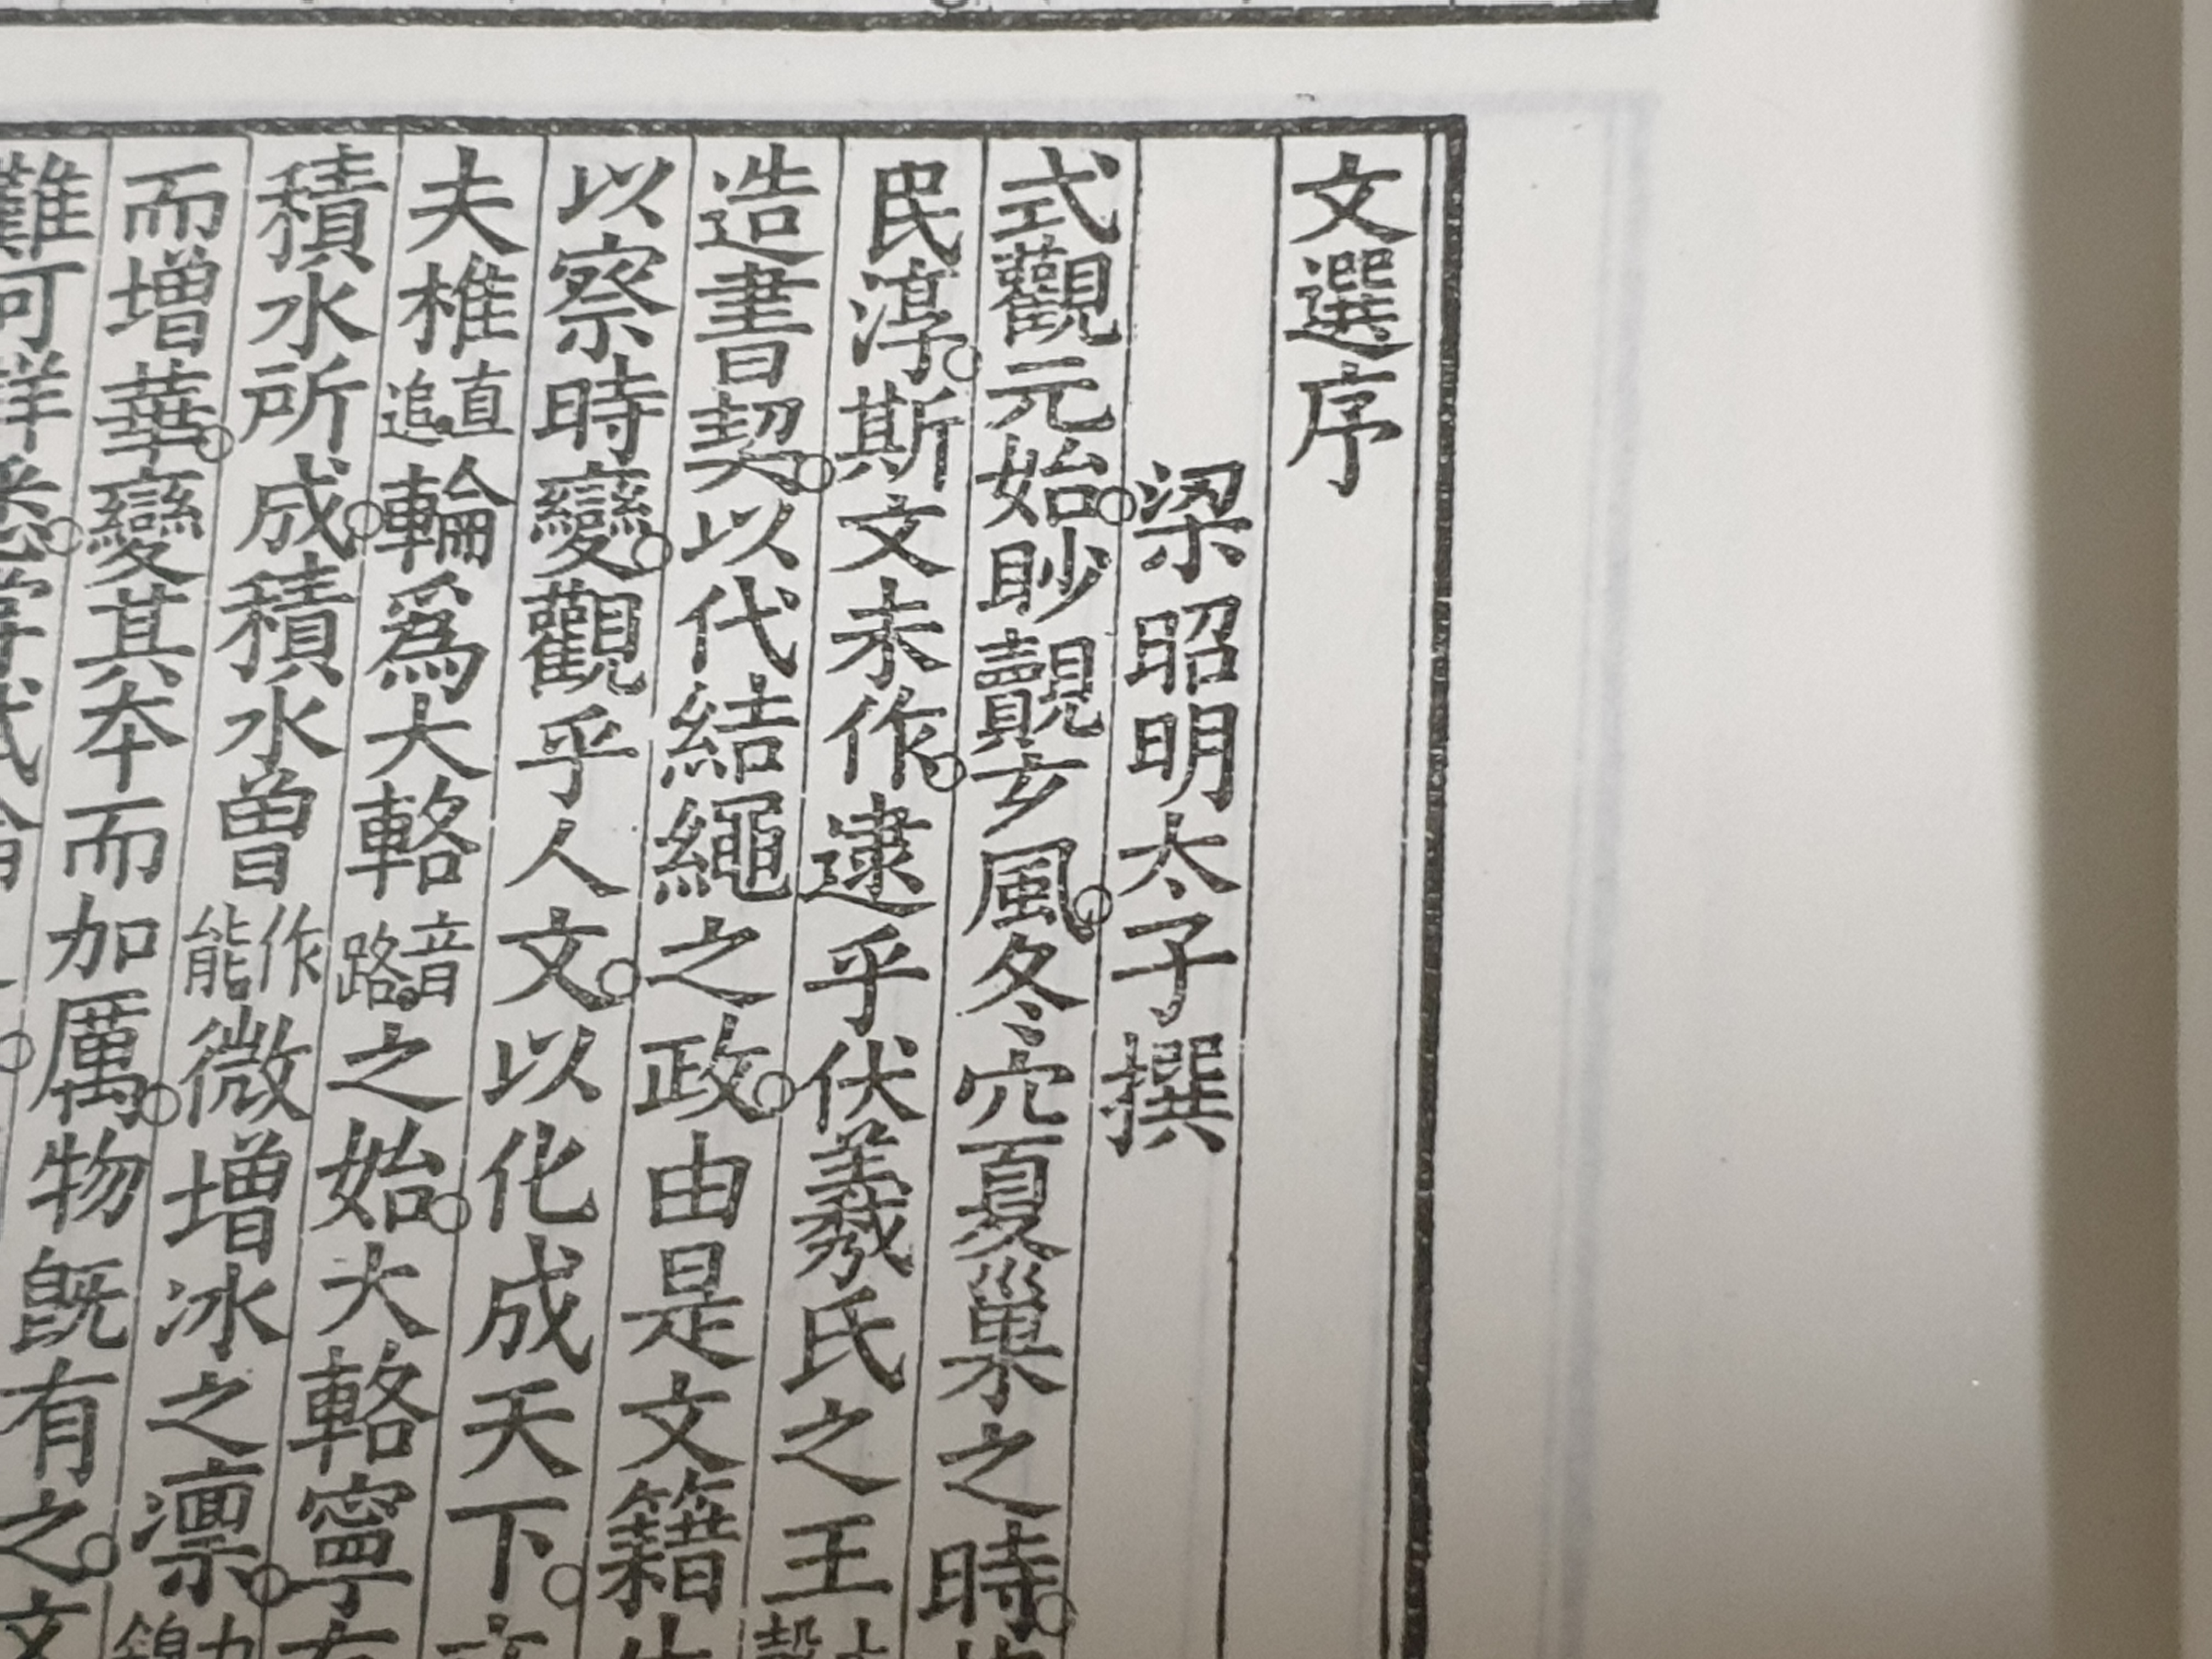 文選序
梁昭明太子撰
式觀元始。眇覿玄風。冬穴夏巢之時。
民淳。斯文未作。逮乎伏羲氏之王
造書契。以代結繩之政。由是文籍
以察時變。觀乎人文。以化成天下。
夫椎直追輪爲大輅音路之始。大輅寧
積水所成。積水曾作能微增冰之凛。
而增華。變其夲而加厲。物旣有之。文
難可詳悉。